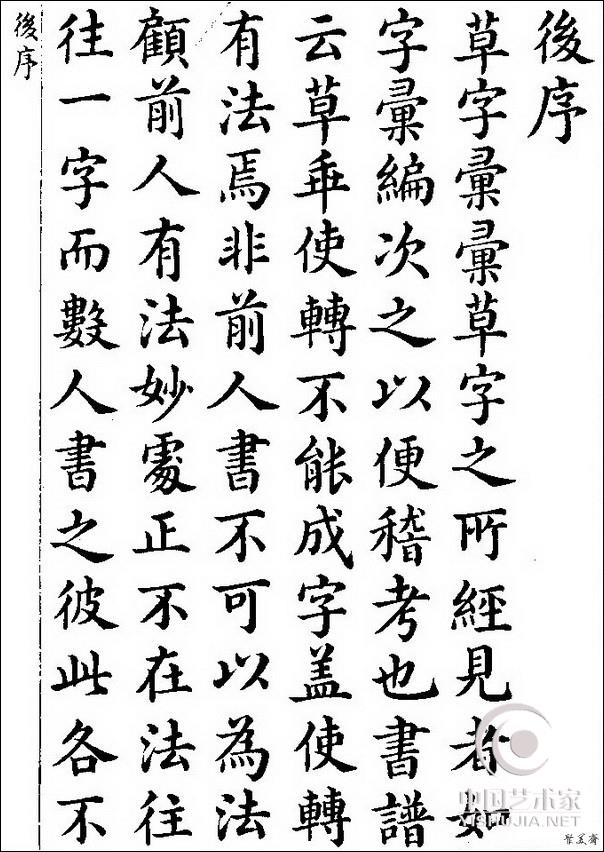 後序
草字彙彙草字之所經見者如
字彙編次之以便稽考也書譜
云草乖使轉不能成字盖使轉
有法焉非前人書不可以為法
顧前人有法妙處正不在法往
往一字而數人書之彼此各不
後序
中国艺术家
YISHUJIA.NET